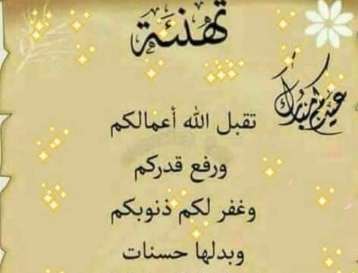 تهنئة
عيدكم مبارك
تقبل الله أعمالكم
ورفع قدركم
وغفر لكم ذنوبكم
وبدلها حسنات